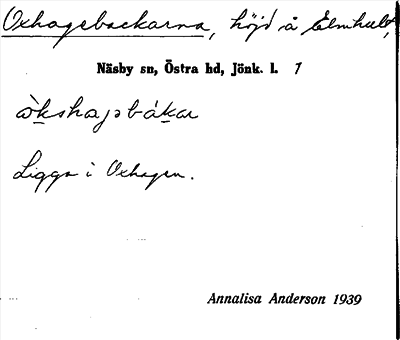 Oxhagebackarna, höjd å Elmhult,
Näsby sn, Östra hd, Jönk. l. 1
òkshaɡəbákar
Ligga i Oxhagen.
Annalisa Anderson 1939